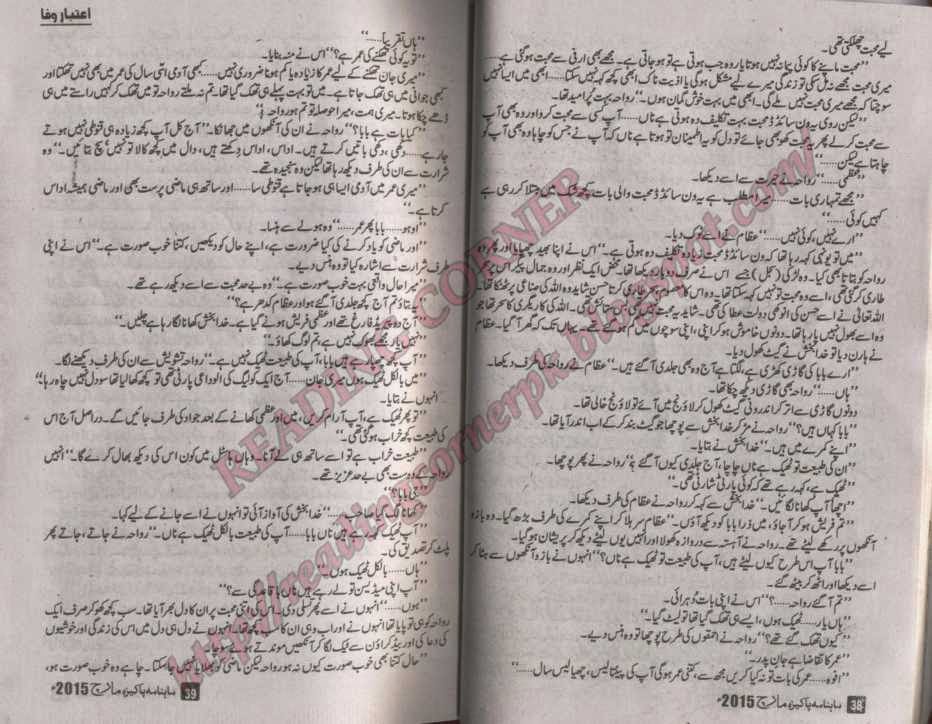 لیے محبت چھلکتی تھی۔
”محبت ماپنے کا کوئی پیمانہ نہیں ہوتا یار وہ جب ہوتی ہے تو ہو جاتی ہے۔ مجھے بھی ارنی سے محبت ہوگئی ہے
میری محبت مجھے نہ مل سکی تو زندگی میرے لیے مشکل ہوگی یا اذیت ناک ابھی کچھ کہہ نہیں سکتا ...... ابھی میں ایسا نہیں
سوچتا کہ مجھے میری محبت نہیں ملے گی۔ ابھی میں بہت خوش گمان ہوں۔“ رواحہ بہت پُرامید تھا۔
”لیکن روی یہ ون سائڈڈ محبت بہت تکلیف دہ ہوتی ہے ناں ...... آپ کسی سے محبت کرو اور وہ بھی آپ
سے محبت کرے پھر یہ محبت کھو بھی جائے تو دل کو یہ اطمینان تو ہوتا ہے ناں کہ آپ نے جس کو چاہا وہ بھی آپ کو
چاہتا ہے لیکن ......“
”عظمی ......“ رواحہ نے حیرت سے اسے دیکھا۔
”مجھے تمہاری بات ...... میرا مطلب ہے یہ ون سائڈڈ محبت والی بات کچھ شک میں مبتلا کر رہی ہے
کہیں کوئی ......“
”ارے نہیں، کوئی نہیں ......“ عظام نے اسے ٹوک دیا۔
”میں تو یونہی کہہ رہا تھا کہ ون سائڈڈ محبت زیادہ تکلیف دہ ہوتی ہے۔“ اس نے اپنا بھید چھپایا اور پھر وہ
رواحہ کو بتاتا بھی کیا۔ وہ لڑکی (جمل) جسے اس نے صرف دو بار دیکھا تھا۔ محض ایک نظر اور وہ جمال پیکر اس پر سحر
طاری کر گئی تھی، اسے وہ محبت تو نہیں کہہ سکتا تھا۔
اللہ تعالیٰ نے اسے حسن کی انوکھی دولت عطا کی تھی۔
وہ اسے بھول نہیں پا رہا تھا۔ دونوں خاموش ہو کر اپنی، اپنی سوچوں میں گم ہو گئے تھے۔ یہاں تک کہ گھر آ گیا۔ عظام
نے ہارن دیا تو خدا بخش نے گیٹ کھول دیا۔
”ارے بابا کی گاڑی کھڑی ہے، لگتا ہے آج وہ بھی جلدی آ گئے ہیں۔“ عظام نے رواحہ کی طرف دیکھا۔
”ہاں ......“ رواحہ بھی گاڑی دیکھ چکا تھا۔
دونوں گاڑی سے اتر کر اندرونی گیٹ کھول کر لاؤنج میں آئے تو لاؤنج خالی تھا۔
”بابا کہاں ہیں؟“ رواحہ نے مڑ کر خدا بخش سے پوچھا جو گیٹ بند کر کے اب اندر آیا تھا۔
”اپنے کمرے میں ہیں۔“ خدا بخش نے بتایا۔
”ان کی طبیعت تو ٹھیک ہے ناں چاچا، آج جلدی کیوں آ گئے؟“ رواحہ نے پھر پوچھا۔
”ٹھیک ہے، کہہ رہے تھے کہ کوئی پارٹی شارٹی تھی۔“
”اچھا آپ کھانا لگائیں۔“ خدا بخش سے کہہ کر رواحہ نے عظام کی طرف دیکھا۔
”تم فریش ہو کر آ جاؤ، میں ذرا بابا کو دیکھ آؤں۔“ عظام سر ہلا کر اپنے کمرے کی طرف بڑھ گیا۔ وہ بازو
آنکھوں پر رکھے لیٹے تھے۔ رواحہ نے آہستہ سے دروازہ کھولا اور انہیں یوں لیٹے دیکھ کر پریشان ہو گیا۔
”بابا آپ اس طرح کیوں لیٹے ہیں، آپ کی طبیعت تو ٹھیک ہے ناں؟“ انہوں نے بازو آنکھوں سے ہٹا کر
اسے دیکھا اور اٹھ کر بیٹھ گئے۔
”تم آ گئے رواحہ ......؟“ اس نے اپنی بات دُہرائی۔
”ہاں یار ...... ٹھیک ہوں، ایسے ہی تھک گیا تھا تو لیٹ گیا۔“
”کیوں تھک گئے تھے؟“ رواحہ نے احمقوں کی طرح پوچھا تو وہ ہنس دیے۔
”عمر کا تقاضا ہے جان پدر۔“
”افوہ ...... عمر کی بات تو نہ کیا کریں مجھ سے، کتنی عمر ہوگی آپ کی پینتالیس، چھیالیس سال ......“
38 ماہنامہ پاکیزہ مارچ 2015ء
اعتبار وفا
”ہاں تقریباً ......“
”تو یہ کوئی تھکنے کی عمر ہے؟“ اس نے منہ بنایا۔
”میری جان تھکنے کے لیے عمر کا زیادہ یا کم ہونا ضروری نہیں ...... کبھی آدمی اسی سال کی عمر میں بھی نہیں تھکتا اور
کبھی جوانی میں ہی تھک جاتا ہے۔ میں تو بہت پہلے ہی تھک گیا تھا۔ تم نہ ملتے رواحہ تو میں تھک کر کہیں راستے میں ہی
ڈھے چکا ہوتا۔ میری ہمت، میرا حوصلہ تو تم ہو رواحہ۔“
”کیا بات ہے بابا؟“ رواحہ نے ان کی آنکھوں میں جھانکا۔ ”آج کل آپ کچھ زیادہ ہی قنوطی نہیں ہوتے
جا رہے ...... دکھی، دکھی باتیں کرتے ہیں۔ اداس، اداس دِکھتے ہیں، دال میں کچھ کالا تو نہیں سچ بتائیں۔“ وہ
شرارت سے ان کی طرف دیکھ رہا تھا لیکن وہ سنجیدہ تھے۔
”میری عمر میں آدمی ایسا ہی ہو جاتا ہے قنوطی سا ...... اور ساتھ ہی ماضی پرست بھی اور ماضی ہمیشہ اداس
کرتا ہے۔“
”اوہو ...... بابا پھر عمر ......“ وہ ہولے سے ہنسا۔
”اور ماضی کو یاد کرنے کی کیا ضرورت ہے، اپنے حال کو دیکھیں، کتنا خوب صورت ہے۔“ اس نے اپنی
طرف شرارت سے اشارہ کیا تو وہ ہنس دیے۔
”میرا حال واقعی بہت خوب صورت ہے۔“ وہ بے حد محبت سے اسے دیکھ رہے تھے۔
”یہ بتاؤ تم آج کچھ جلدی آ گئے ہو اور عظام کدھر ہے؟“
”آج دو پیریڈ فارغ تھے اور عظمی فریش ہونے گیا ہے۔ خدا بخش کھانا لگا رہا ہے چلیں۔“
”نہیں یار مجھے بھوک نہیں ہے، تم لوگ کھاؤ۔“
”آپ کچھ چھپا رہے ہیں بابا، آپ کی طبیعت ٹھیک نہیں ہے۔“ رواحہ تشویش سے ان کی طرف دیکھنے لگا۔
”میں بالکل ٹھیک ہوں میری جان ...... آج ایک کولیگ کی الوداعی پارٹی تھی تو کچھ کھا لیا تھا سو دل نہیں چاہ رہا۔“
انہوں نے بتایا۔
”تو پھر ٹھیک ہے، آپ آرام کریں، میں اور عظمی کھانے کے بعد جواد کی طرف جائیں گے۔ دراصل آج اس
کی طبیعت کچھ خراب ہو گئی تھی۔“
”طبیعت خراب ہے تو اسے ساتھ ہی لے آنا۔ وہاں ہاسٹل میں کون اس کی دیکھ بھال کرے گا۔“ انہیں
رواحہ کے دوست بھی بے حد عزیز تھے۔
”جی بابا۔“
”کھانا لگ گیا صاحب ......“ خدا بخش کی آواز آئی تو انہوں نے اسے جانے کے لیے کہا۔
”آپ ٹھیک ہیں ناں بابا ...... آپ کی طبیعت بالکل ٹھیک ہے ناں۔“ رواحہ نے جاتے، جاتے پھر
پلٹ کر تصدیق کی۔
”ہاں ...... بالکل ٹھیک ہوں۔“
”آپ اپنی میڈیسن تو لے رہے ہیں ناں باقاعدگی سے؟“
”ہوں ......“ انہوں نے اسے پھر تسلی دی۔ اس کی اتنی محبت پر ان کا دل بھر آیا تھا۔ سب کچھ کھو کر صرف ایک
رواحہ کو ہی تو پایا تھا انہوں نے اور اب وہی ان کا سب کچھ تھا۔ انہوں نے دل ہی دل میں اس کی زندگی اور خوشیوں
کی دعا کی اور بیڈ کراؤن سے ٹیک لگا کر آنکھیں موندتے ہوئے سوچا۔
”حال کتنا بھی خوب صورت کیوں نہ ہو رواحہ لیکن ماضی کو بھلایا نہیں جا سکتا۔ چاہے وہ خوب صورت ہو،
39 ماہنامہ پاکیزہ مارچ 2015ء
READING CORNER
http://readingcornerpk.blogspot.com/